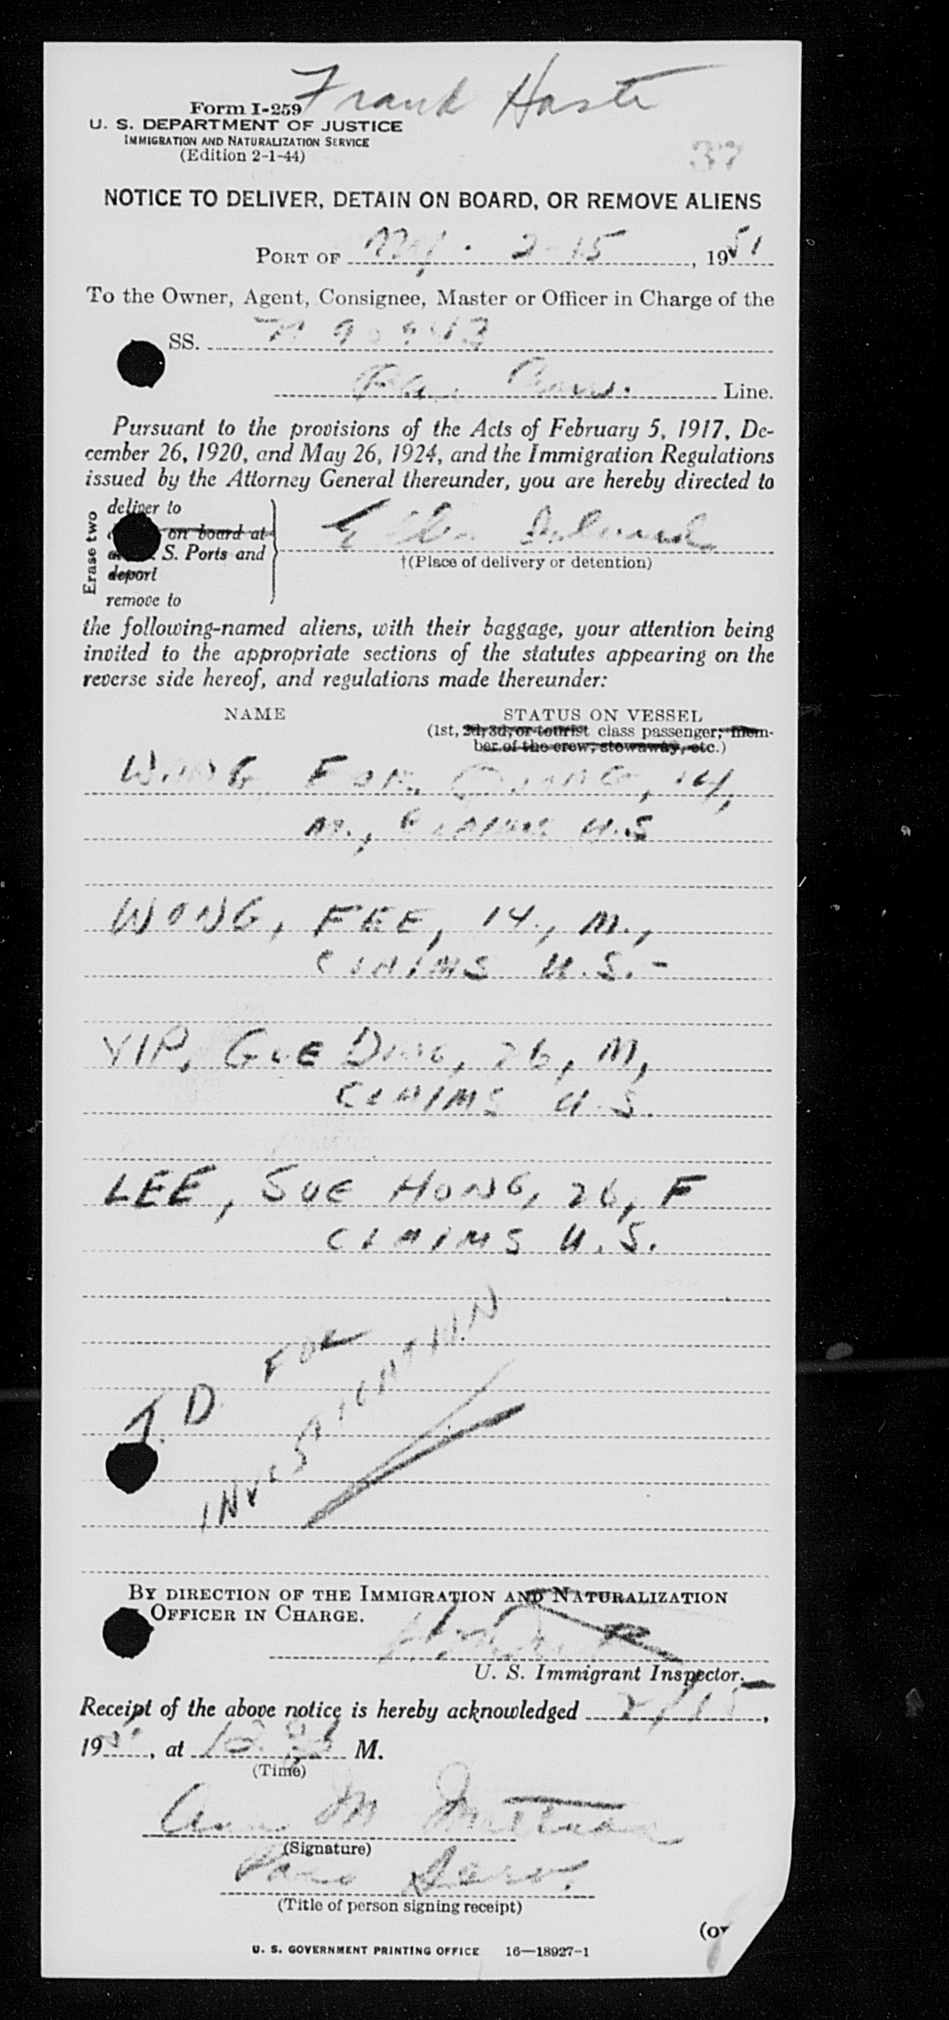 Frank
Form I-259
U. S. DEPARTMENT OF JUSTICE
IMMIGRATION AND NATURALIZATION SERVICE
(Edition 2-1-44)
37
NOTICE TO DELIVER, DETAIN ON BOARD, OR REMOVE ALIENS
PORT OF N.Y. 2-15, 1951
To the Owner, Agent, Consignee, Master or Officer in Charge of the
SS.
Pan Line.
Pursuant to the provisions of the Acts of February 5, 1917, De-
cember 26, 1920, and May 26, 1924, and the Immigration Regulations
issued by the Attorney General thereunder, you are hereby directed to
Erase two
deliver to
on board at
S. Ports and
deport
remove to
Ellis Island
†(Place of delivery or detention)
the following-named aliens, with their baggage, your attention being
invited to the appropriate sections of the statutes appearing on the
reverse side hereof, and regulations made thereunder:
NAME STATUS ON VESSEL
(1st, 2d, 3d, or tourist class passenger; mem-
ber of the crew, stowaway, etc.)
WONG 14,
M., CLAIMS U.S
WONG, FEE, 14., M.,
CLAIMS U.S.-
YIP, GUE DING, 26, M,
CLAIMS U.S.
LEE, SUE HONG, 26, F
CLAIMS U.S.
T.D. FOR
INVESTIGATION
BY DIRECTION OF THE IMMIGRATION AND NATURALIZATION
OFFICER IN CHARGE.
U. S. Immigrant Inspector.
Receipt of the above notice is hereby acknowledged 2/15,
19, at M.
(Time)
Ann M
(Signature)
Serv.
(Title of person signing receipt)
(ov
U. S. GOVERNMENT PRINTING OFFICE 16—18927-1